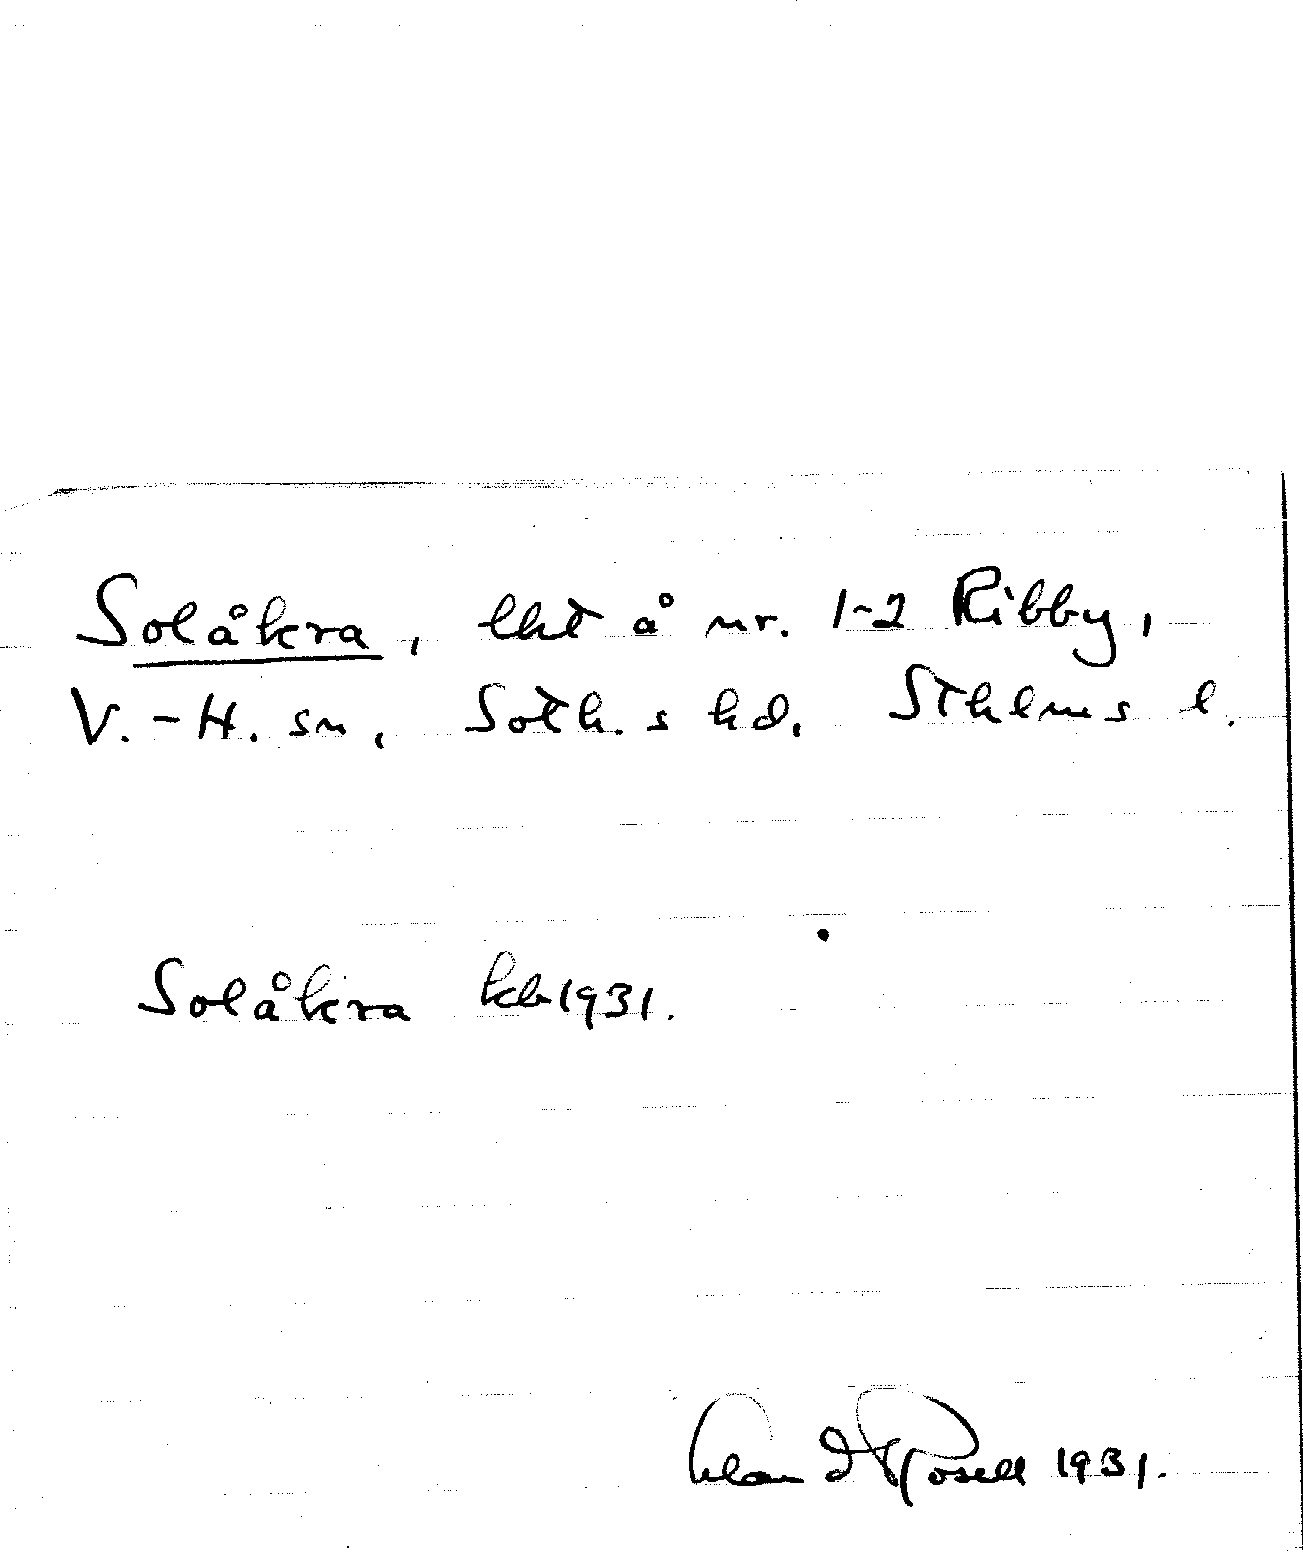 Solåkra, lht å nr. 1-2 Ribby,
V.-H. sn, Soth.s hd, Sthlms l.
Solåkra kb 1931.
Rosell 1931.